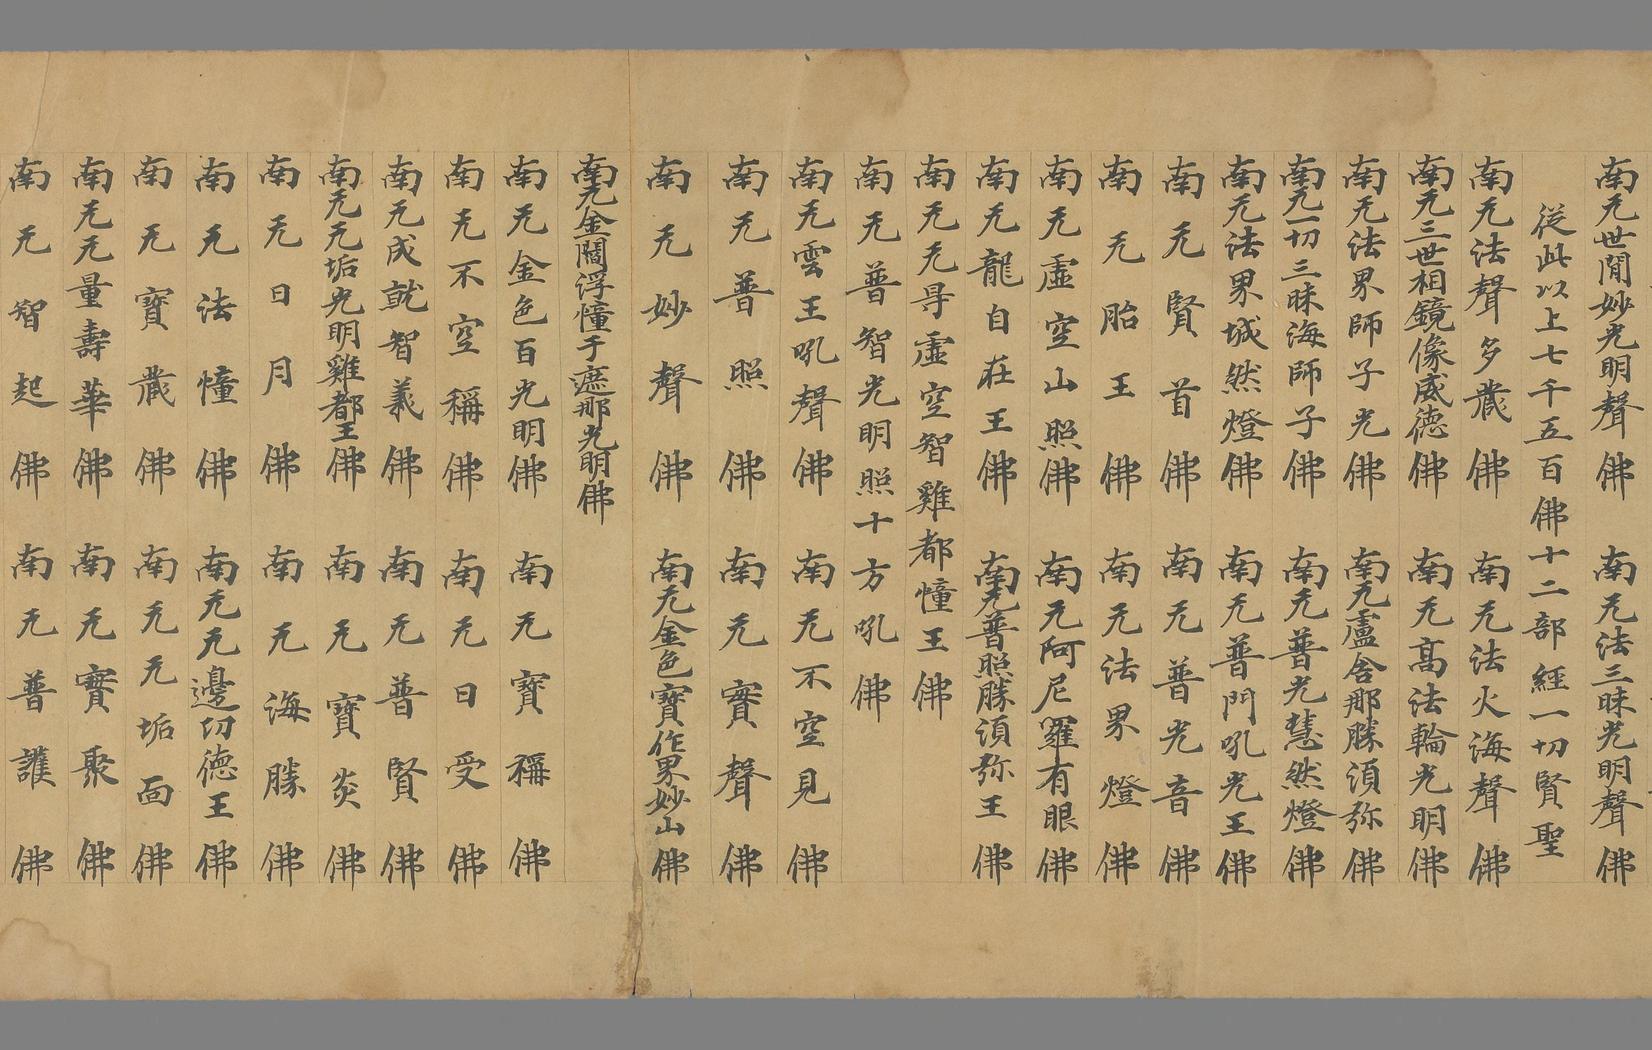 南无世間妙光明聲佛　南无法三昧光明聲佛
從此以上七千五百佛十二部經一切賢聖
南无法聲多藏佛　南无法火海聲佛
南无三世相鏡像威德佛　南无高法輪光明佛
南无法界師子光佛　南无盧舍那勝須弥佛
南无一切三昧海師子佛　南无普光慧然燈佛
南无法界城然燈佛　南无普門吼光王佛
南无賢首佛　南无普光音佛
南无胎王佛　南无法界燈佛
南无虛空山照佛　南无阿尼羅有眼佛
南无龍自在王佛　南无普照勝須弥王佛
南无无㝵虛空智雞都幢王佛
南无普智光明照十方吼佛
南无雲王吼聲佛　南无不空見佛
南无普照佛　南无寶聲佛
南无妙聲佛　南无金色寶作界妙山佛
南无金閻浮幢于遮那光明佛
南无金色百光明佛　南无寶稱佛
南无不空稱佛　南无日受佛
南无成就智義佛　南无普賢佛
南无无垢光明雞都王佛　南无寶炎佛
南无日月佛　南无海勝佛
南无法幢佛　南无无邊功德王佛
南无寶藏佛　南无无垢面佛
南无无量壽華佛　南无寶聚佛
南无智起佛　南无普護佛